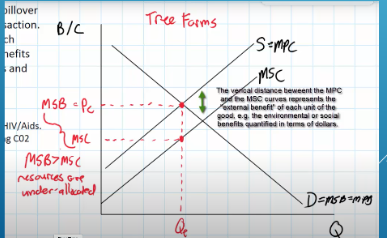 pillover
saction.
ch
nefits
s and
HIV/Aids.
g CO2
Tree Farms
B/C
S=MPC
MSC
The verical distance beweent the MPC
and the MSC curves represents the
"external benefit" of each unit of the
good, e.g. the environmental or social
benefits quantified in terms of dollars.
MSB = Pc
MSC
MSB>MSC
resources are
under-allocated
D=MSB=MPB
Qe
Q